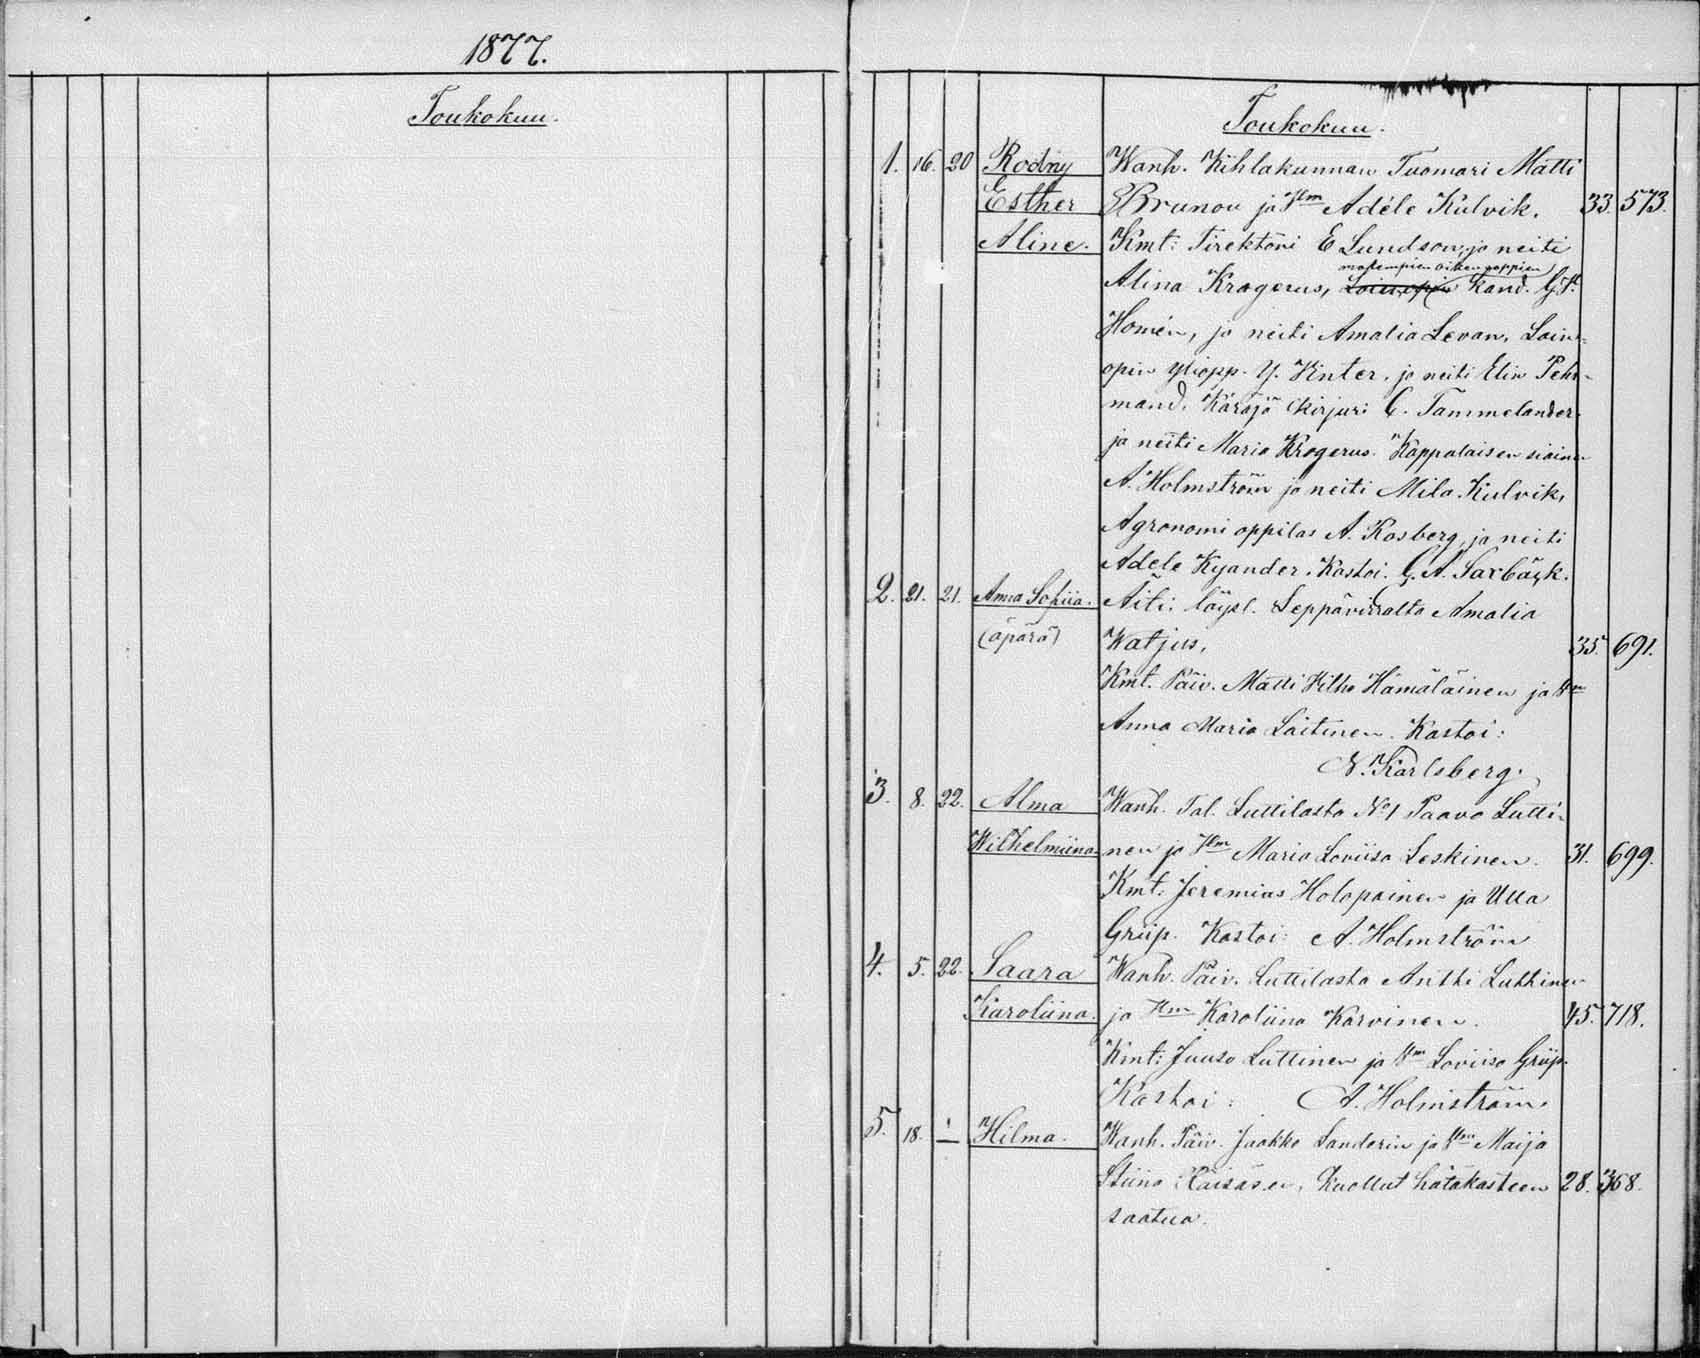 1877.
Toukokuu.
Toukokuu.
1. 16. 20 Rodny Wanh. Kihlakunnan Tuomari Matti
Esther Brunou ja Hm Adéle Kulvik. 33. 573.
Aline. Kmt: Tirektöri E Lundson, ja neiti
molempien oikeu
Alina Krogerus, kand. G. F.
Homén, ja neiti Amalia Levan, Lain-
opin yliopp. Y. Winter, ja neiti Elin Pehr-
mand. Käräjä kirjuri C. Tammelander
ja neiti Maria Krogerus. Kappalaisen siainen
A. Holmström ja neiti Mila Kulvik,
Agronomi oppilas A. Kosberg, ja neiti
Adele Kyander. Kastoi. G. A. Saxbäck.
2. 21. 21. Anna Sofiia. Äiti: löysl. Leppävirralta Amalia
(äpärä) Watjus, 35. 691.
Kmt. Päiv. Matti Wilho Hämäläinen ja Hm
Anna Maria Laitinen. Kastoi:
N. Karlsberg.
3. 8. 22. Alma Wanh. Tal. Luttilasta No 1 Paavo Lutti-
Wilhelmiina. nen ja Hm Maria Loviisa Leskinen. 31. 699.
Kmt: Jeremias Holopainen ja Ulla
Griip. Kastoi: A. Holmström
4. 5. 22. Saara Wanh. Päiv. Luttilasta Antti Luttinen
Karoliina. ja Hm Karoliina Karvinen. 45. 718.
Kmt: Juuso Luttinen ja Hm Loviisa Griip.
Kastoi: A. Holmström.
5. 18. — Hilma. Wanh. Päiv. Jaakko Sanderin ja Hm Maija
Stiina Räisäsen, Kuollut hätäkasteen 28. 368.
saatua.